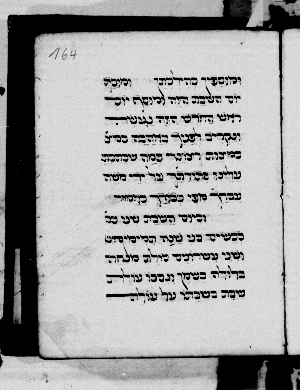 164
ומוספין כהילכתן ומוסף
יום השבת הזה ומוסף יום
ראש החדש הזה נעשה
ונקריב לפניך באהבה כמצ
כמיצות רצונך כמה שכתבת
עלינו בתורתך על ידי משה
עבדך מפי כבודך כאמור
וביום השבת שני כב
כבשים בני שנה תמימים
ושני עשרונים סולת מנחה
בלולה בשמן ונסכו עולת
שבת בשבתו על עולת